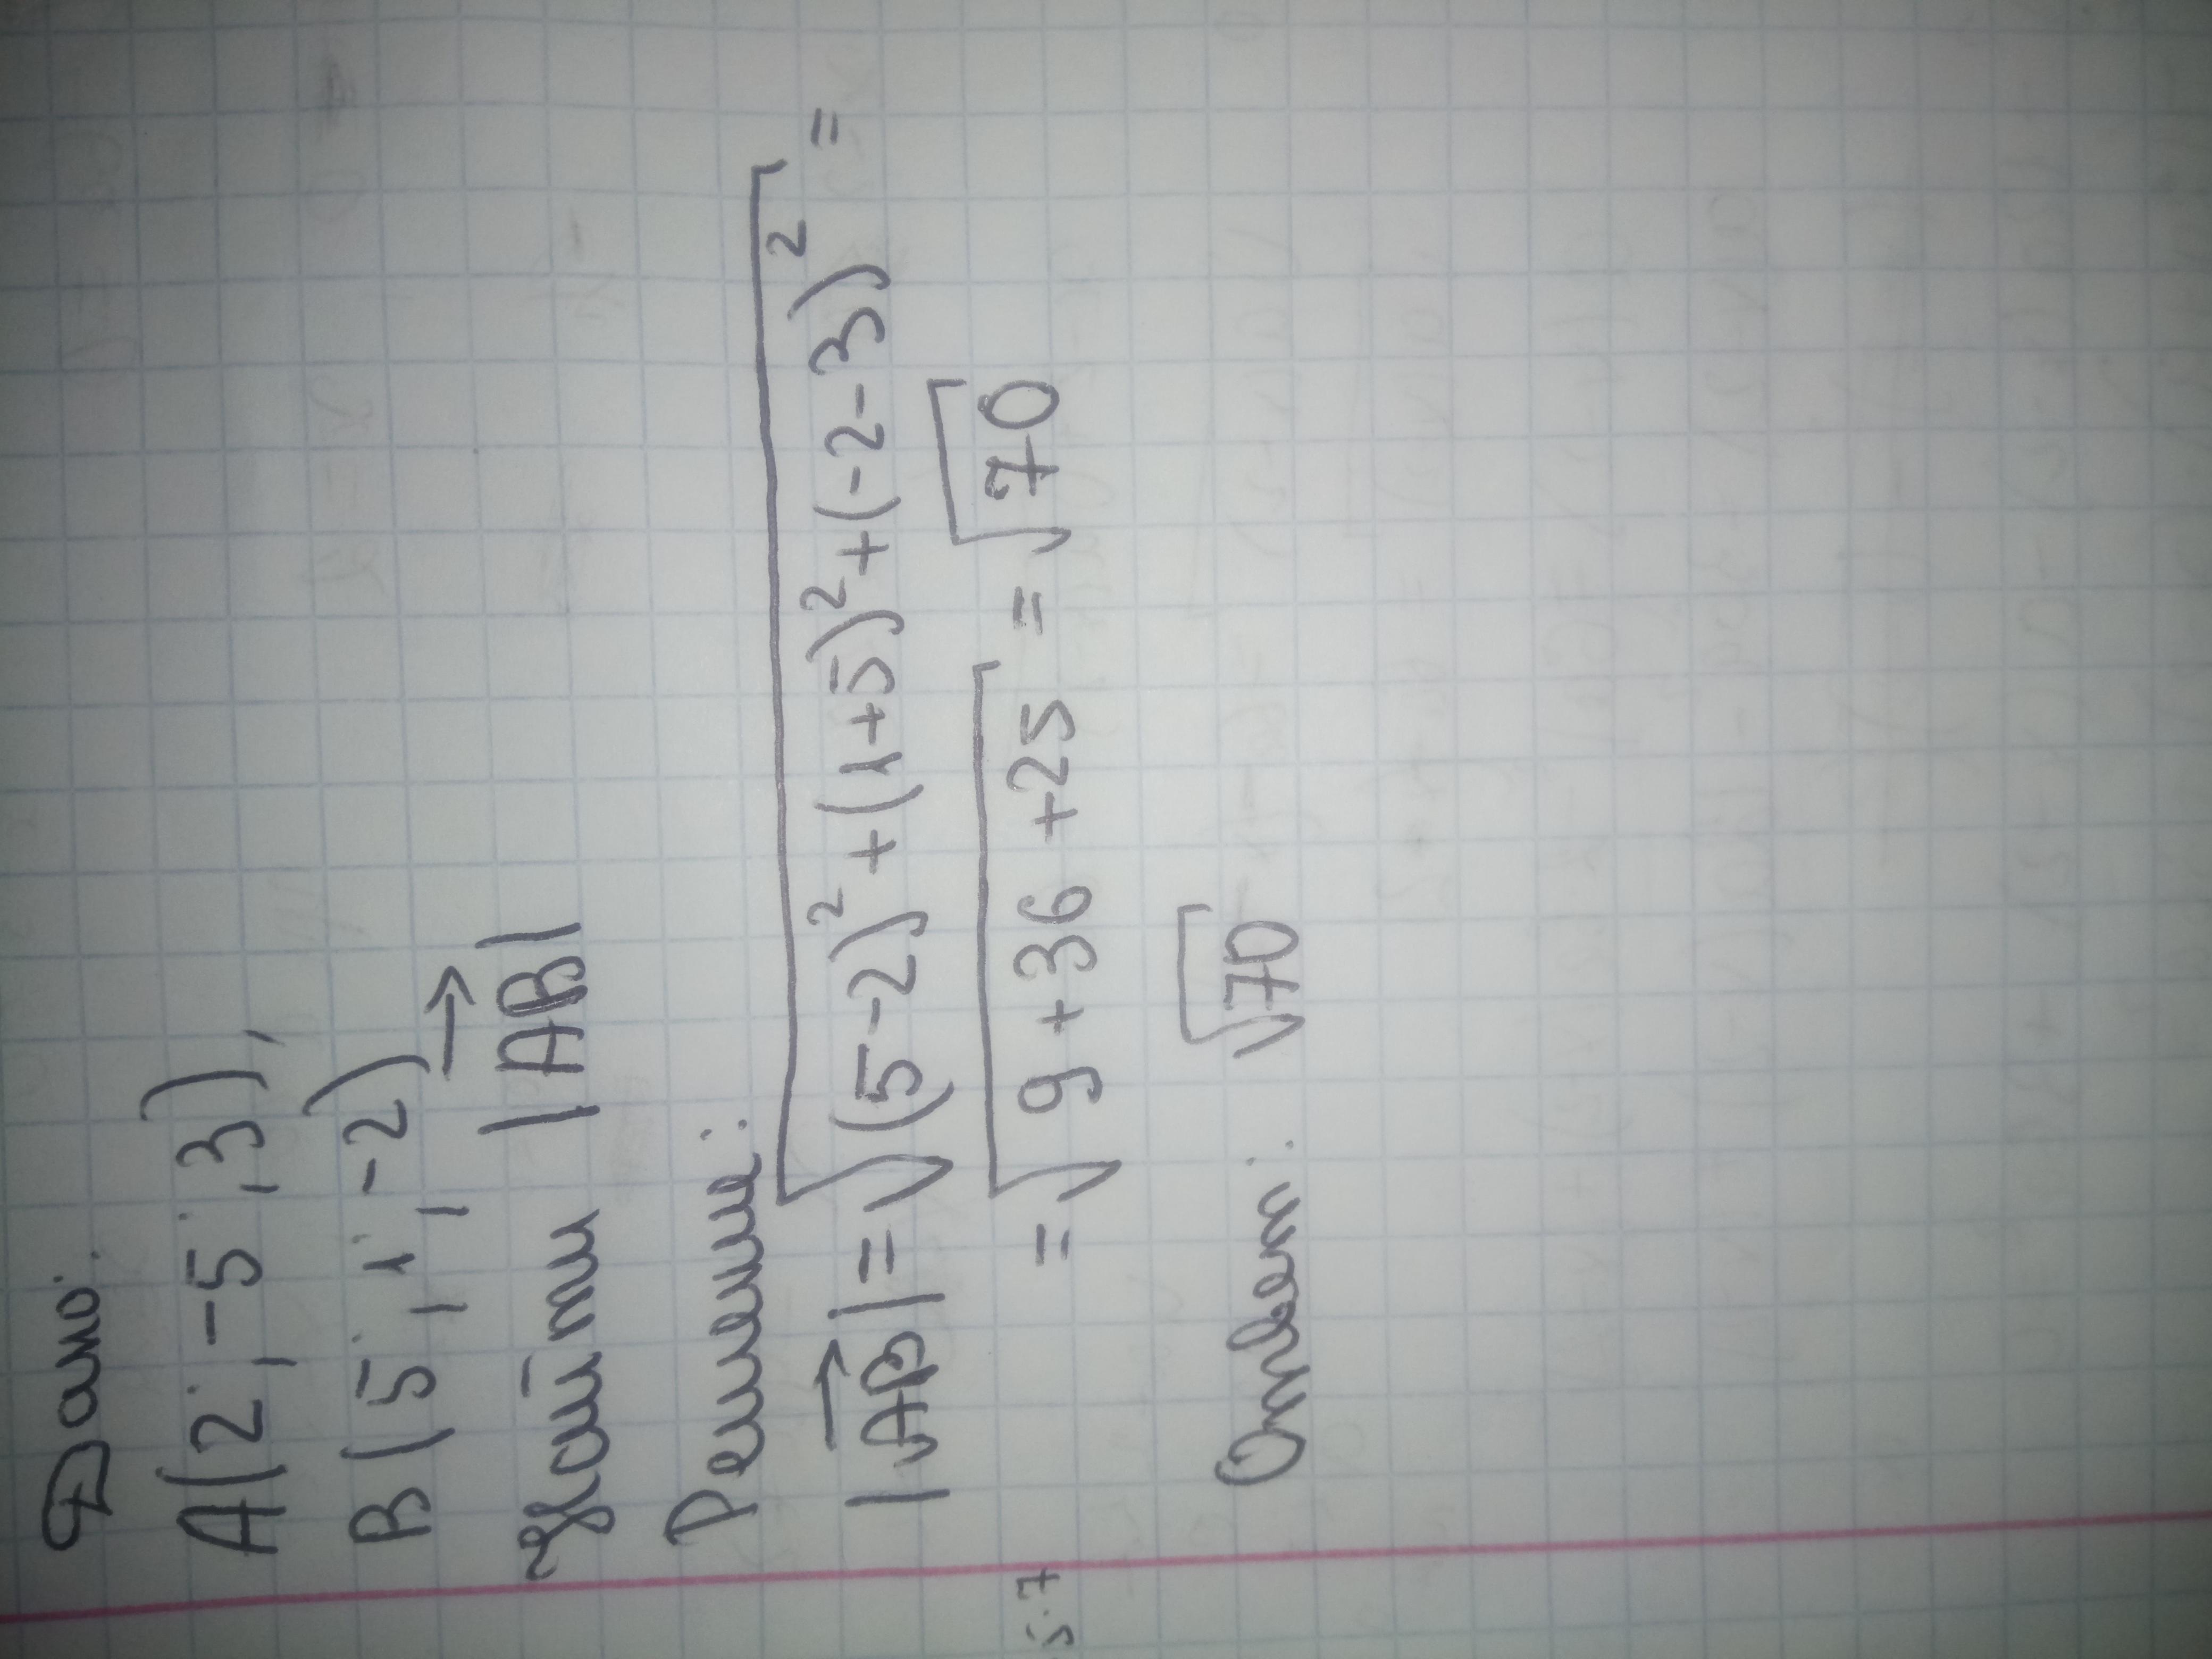 Дано:
A(2; -5; 3),
B(5; 1; -2)
Найти |AB|
Решение:
|AB| = √(5-2)² + (1+5)² + (-2-3)² =
= √9 + 36 + 25 = √70
Ответ: √70
5·7